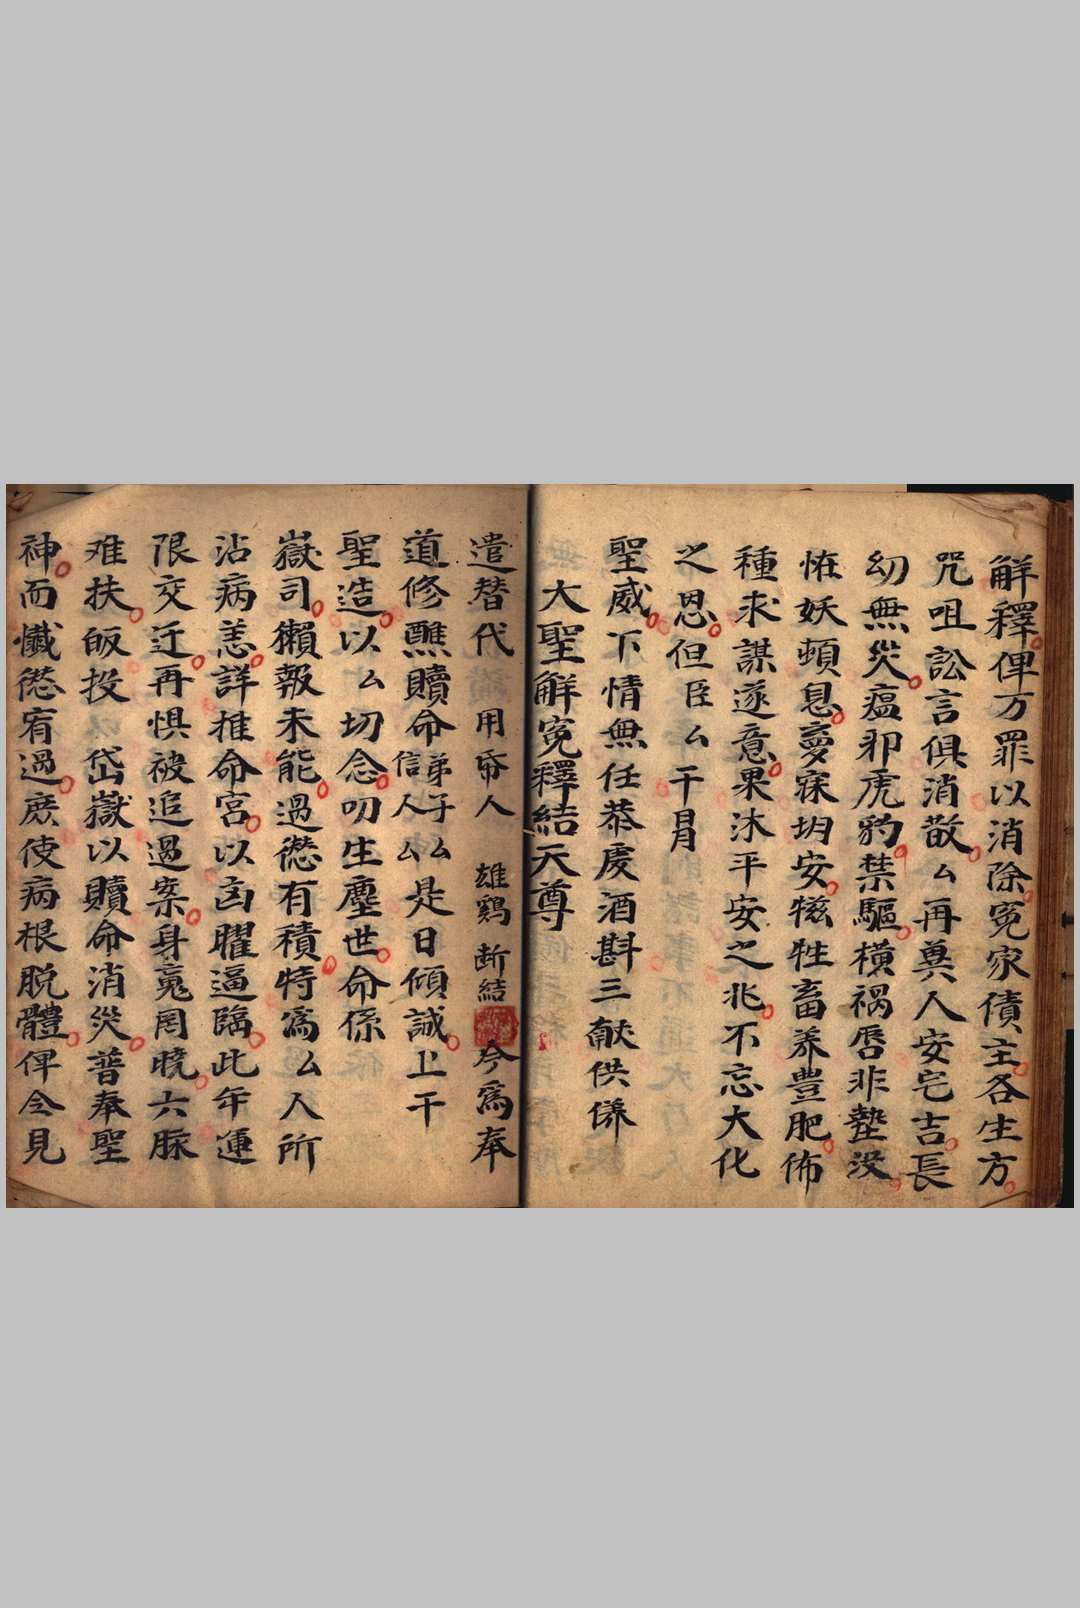 解釋俾万罪以消除冤家債主各生方
咒咀訟言俱消散厶再奠人安宅吉長
幼無災瘟邪虎豹禁驅橫祸唇非墊没
恠妖頓息夣寐坍安牸牲畜养豊肥佈
種求謀遂意果沐平安之兆不忘大化
之恩但臣厶干冒
聖威下情無任恭虔酒斟三献供偹
大聖解冤釋結天尊
遣替代 用帋人 雄鷄 断結 今為奉
道修醮贖命弟子厶信人厶是日傾誠上干
聖造以厶切念叨生塵世命係
嶽司懶報未能過愆有積特為厶人所
沾病恙詳推命宮以凶曜逼臨此年運
限交迍再惧被追過案身䰟罔曉六脉
难扶皈投 岱嶽以贖命消災普奉聖
神而懴愆宥過庶使病根脱體俾令見